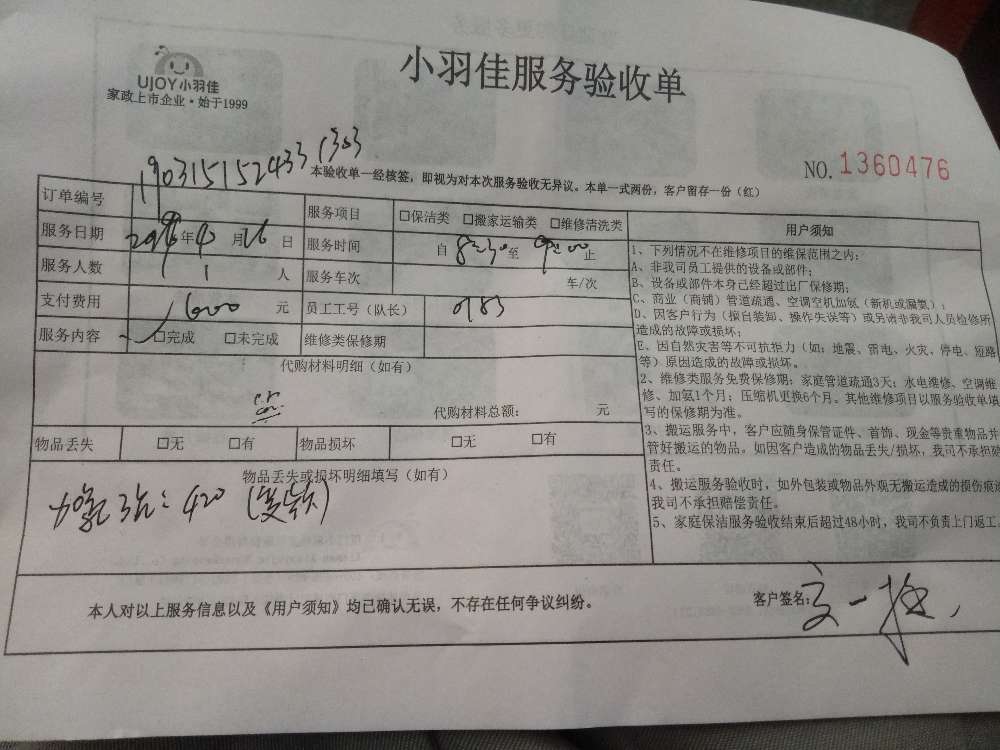 UJOY小羽佳
家政上市企业·始于1999
小羽佳服务验收单
190315152433 1303
本验收单一经核签，即视为对本次服务验收无异议。本单一式两份，客户留存一份（红）
NO. 1360476
订单编号
服务项目 □保洁类 □搬家运输类 □维修清洗类
服务日期 年 月16日
服务时间 自 8:30 至 9:00 止
服务人数 1 人
服务车次 车/次
支付费用 元
员工工号（队长） 0183
服务内容 □完成 □未完成
维修类保修期
代购材料明细（如有）
代购材料总额： 元
物品丢失 □无 □有
物品损坏 □无 □有
物品丢失或损坏明细填写（如有）
加氢 420
用户须知
1、下列情况不在维修项目的维保范围之内：
A、非我司员工提供的设备或部件；
B、设备或部件本身已经超过出厂保修期；
C、商业（商铺）管道疏通、空调空机加氨（新机或漏氨）；
D、因客户行为（擅自装卸、操作失误等）或另请非我司人员检修所
造成的故障或损坏；
E、因自然灾害等不可抗拒力（如：地震、雷电、火灾、停电、短路
等）原因造成的故障或损坏。
2、维修类服务免费保修期：家庭管道疏通3天；水电维修、空调维
修、加氨1个月；压缩机更换6个月。其他维修项目以服务验收单填
写的保修期为准。
3、搬运服务中，客户应随身保管证件、首饰、现金等贵重物品并
管好搬运的物品。如因客户造成的物品丢失/损坏，我司不承担赔
责任。
4、搬运服务验收时，如外包装或物品外观无搬运造成的损伤痕迹
我司不承担赔偿责任。
5、家庭保洁服务验收结束后超过48小时，我司不负责上门返工。
本人对以上服务信息以及《用户须知》均已确认无误，不存在任何争议纠纷。
客户签名：